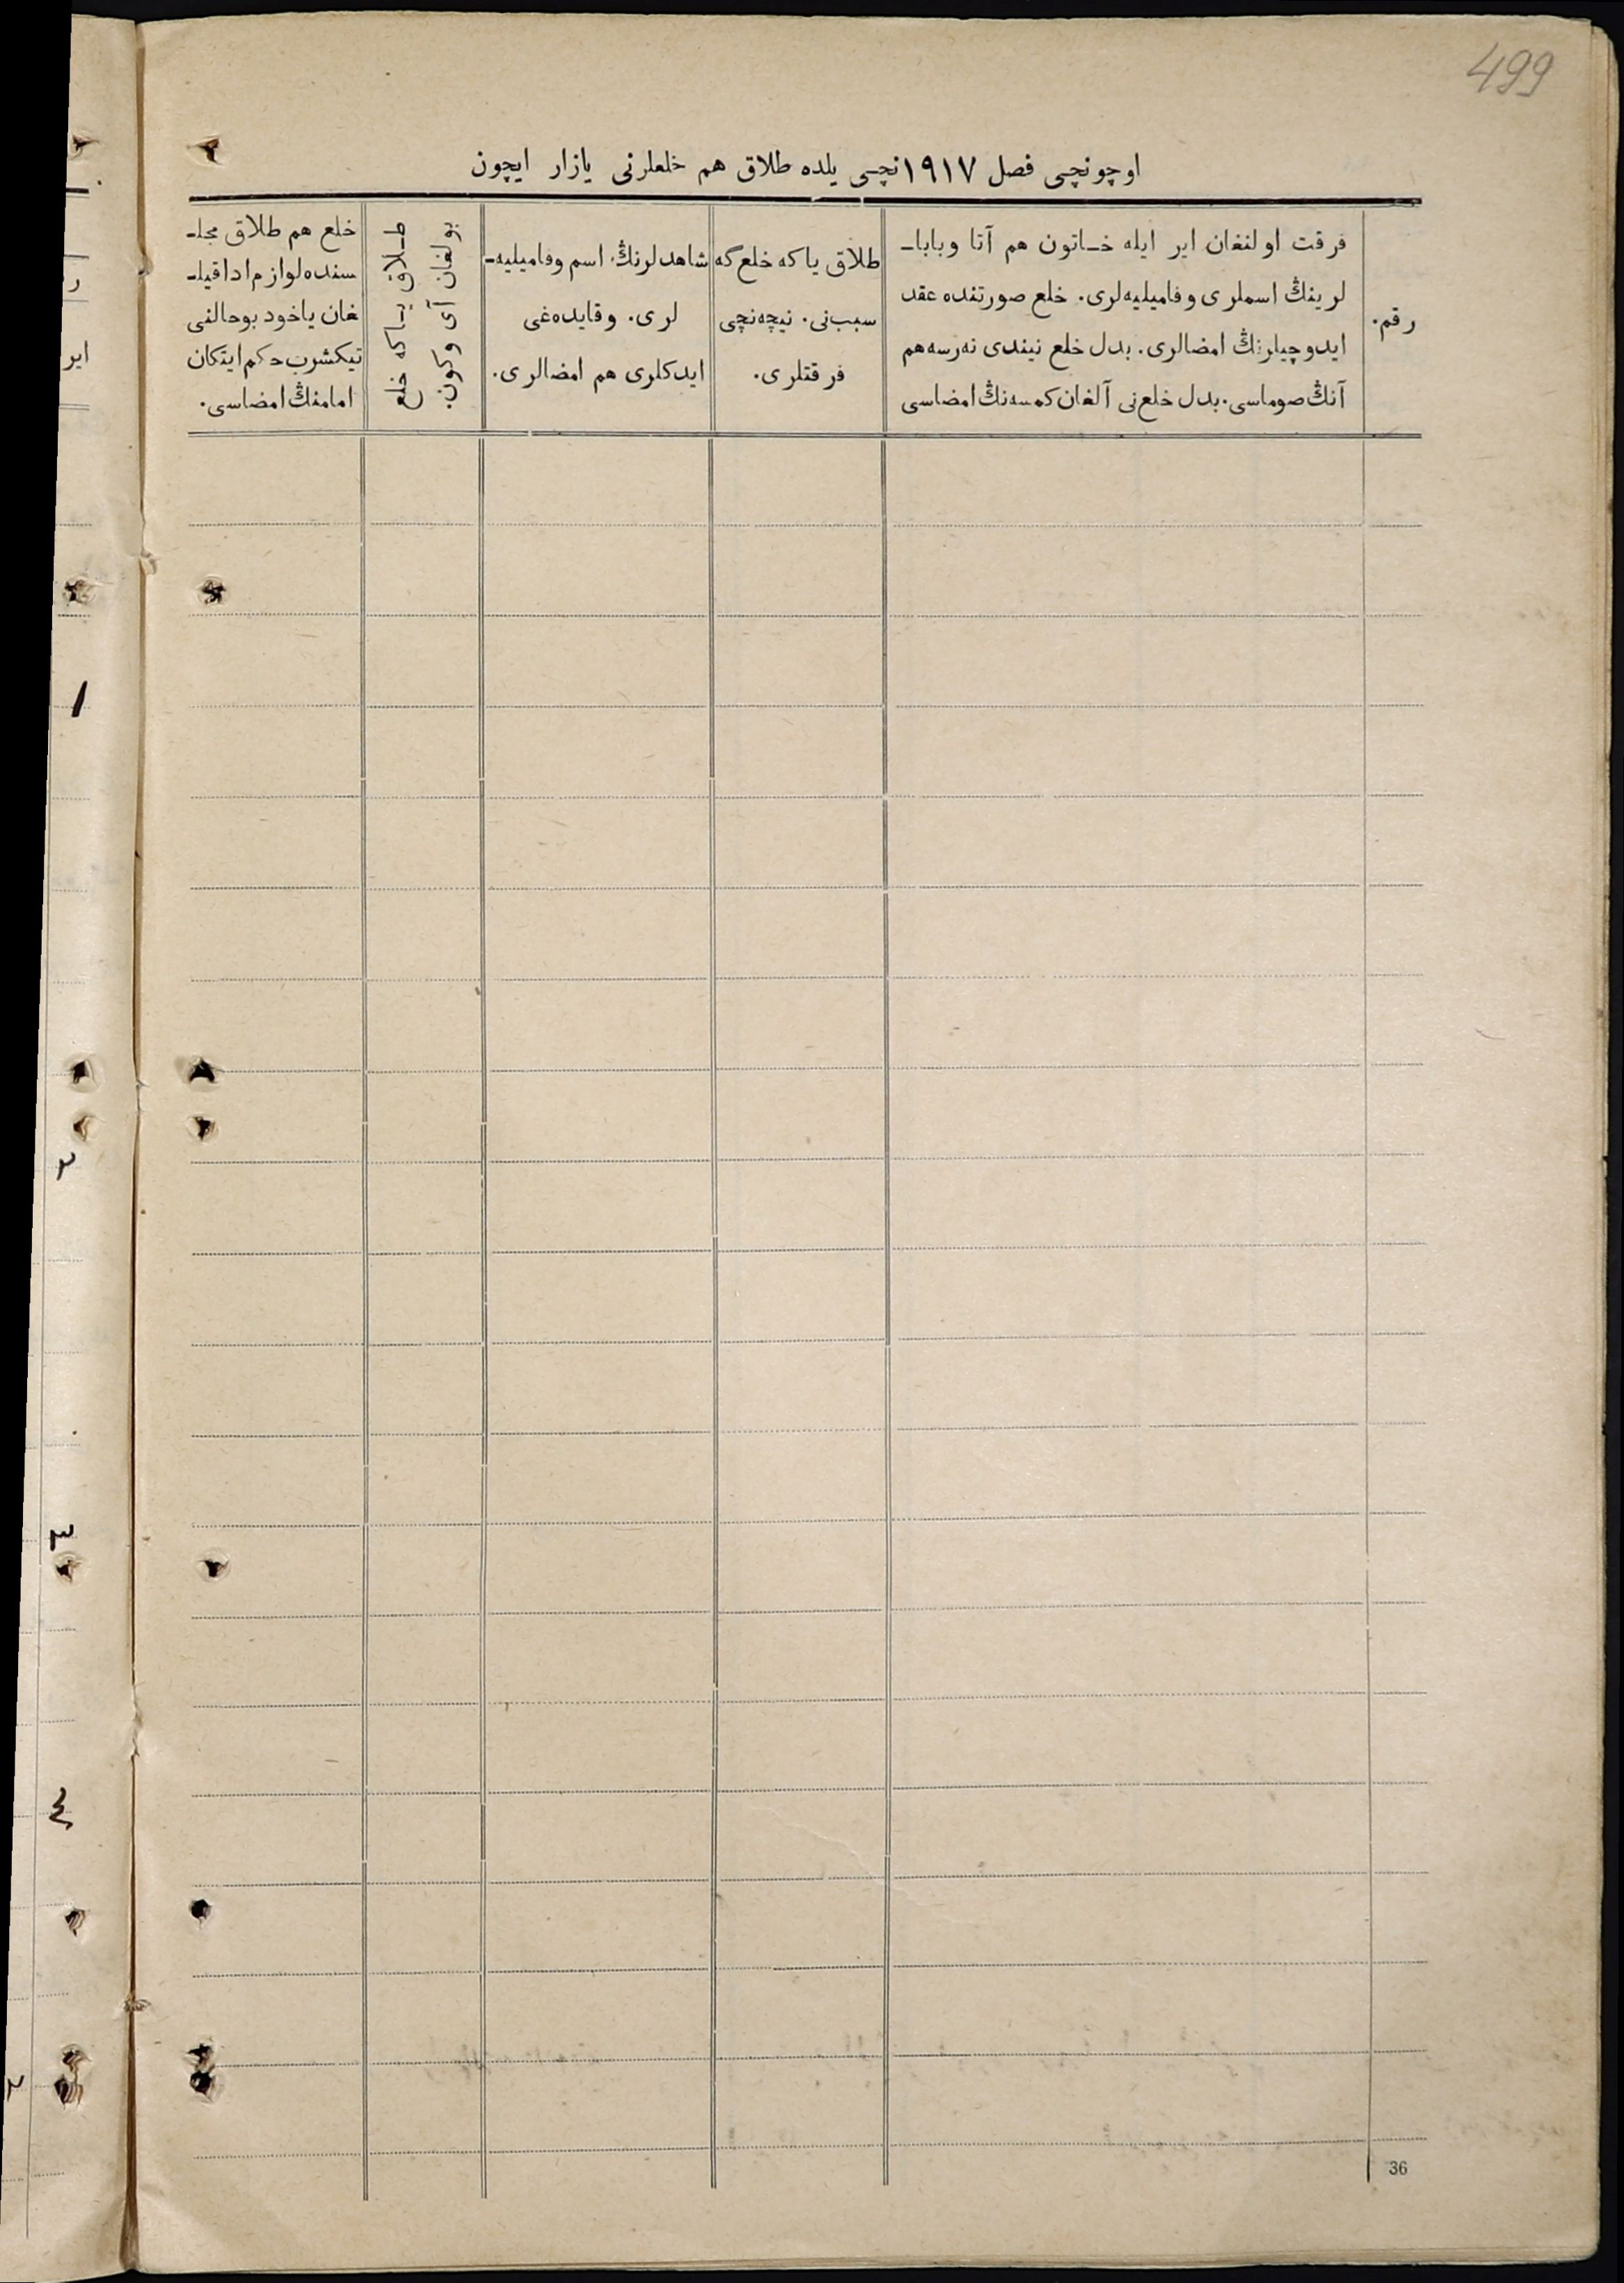 499
اوچونچی فصل ١٩١٧نچی يلده طلاق هم خلعلرنی يازار ايچون
رقم.
فرقت اولنغان اير ايله خـاتون هم آتا وبابا‍ـ
لرينڭ اسملری وفاميليه‌لری. خلع صورتنده عقد
ايدوچيلرنڭ امضالری. بدل خلع نيندی نه‌رسه هم
آنڭ صوماسی. بدل خلع‌نی آلغان كمسه‌نڭ امضاسی
طلاق ياكه خلع‌گه
سبب‌نی. نيچه‌نچی
فرقتلری.
شاهدلرنڭ اسم وفاميليه‍ـ
لری. وقايده‌غی
ايدكلری هم امضالری.
طـلاق يـاكه خلع
بولغان آی وكون.
خلع هم طلاق مجلـ
سنده لوازم ادا قيلـ
غان ياخود بوحالنی
تيكشرب حكم ايتكان
امامنڭ امضاسی.
36
ر
اير
١
٢
٣
٤
٢